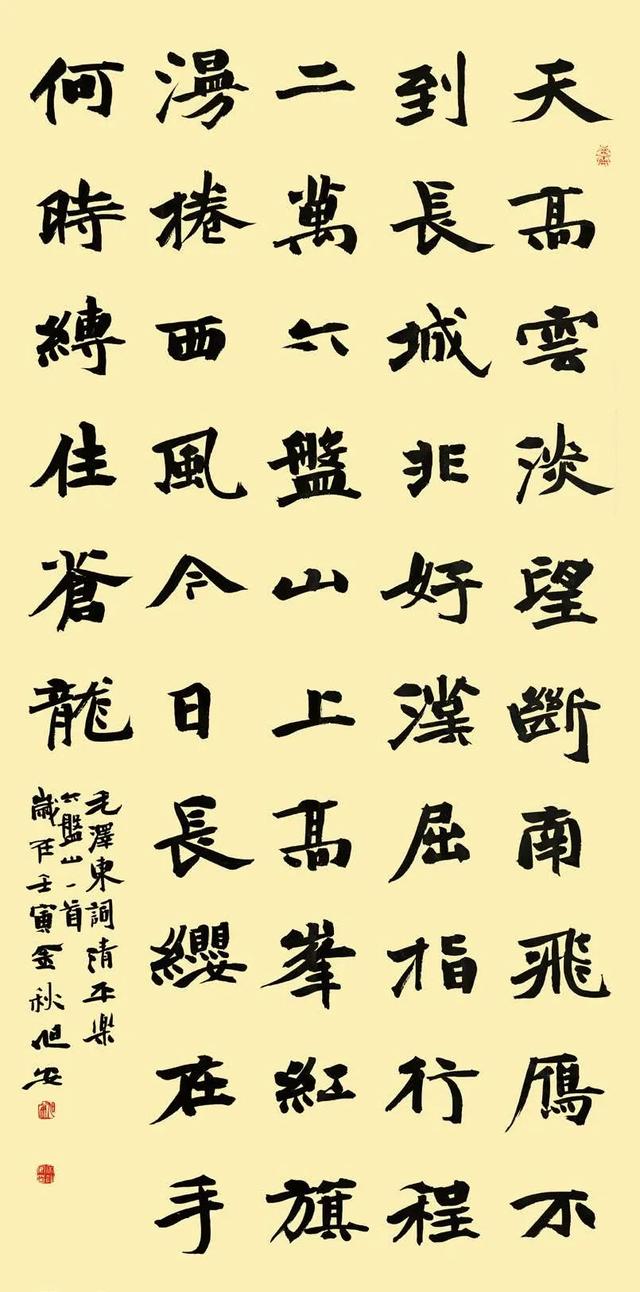 天高雲淡望斷南飛雁不
到長城非好漢屈指行程
二萬六盤山上高峯紅旗
漫捲西風今日長纓在手
何時縛住蒼龍
毛澤東詞清平樂
六盤山一首
歲在壬寅金秋旭安